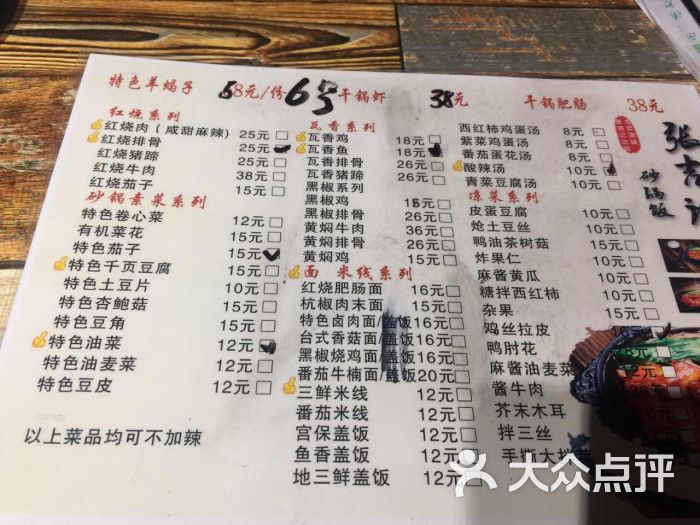 特色羊蝎子 68元/份 6号 干锅虾 38元 干锅肥肠 38元
红烧系列
红烧肉（咸甜麻辣） 25元
红烧排骨 25元
红烧猪蹄 25元
红烧牛肉 38元
红烧茄子 15元
砂锅素菜系列
特色卷心菜 12元
有机菜花 15元
特色茄子 15元
特色千页豆腐 12元
特色土豆片 10元
特色杏鲍菇 15元
特色豆角 15元
特色油菜 12元
特色油麦菜 12元
特色豆皮 12元
以上菜品均可不加辣
瓦香系列
瓦香鸡 18元
瓦香鱼 18元
瓦香排骨 26元
瓦香猪蹄 26元
黑椒系列
黑椒鸡
黑椒排骨 26元
黄焖牛肉 36元
黄焖鸡 15元
面 米线系列
红烧肥肠面 16元
杭椒肉末面 15元
特色卤肉面/盖饭 16元
台式香菇面/盖饭 16元
黑椒烧鸡面/盖饭 16元
番茄牛楠面/盖饭 20元
三鲜米线 12元
番茄米线 12元
宫保盖饭 12元
鱼香盖饭 12元
地三鲜盖饭 12元
西红柿鸡蛋汤 8元
紫菜鸡蛋汤 8元
番茄蛋花汤 8元
酸辣汤 10元
青菜豆腐汤 10元
凉菜系列
皮蛋豆腐 10元
炝土豆丝 10元
鸭油茶树菇 15元
炸果仁 10元
麻酱黄瓜 10元
糖拌西红柿 10元
杂果 10元
鸡丝拉皮
鸭肘花
麻酱油麦菜
酱牛肉
芥末木耳
拌三丝
手撕大拌
砂锅饭
大众点评